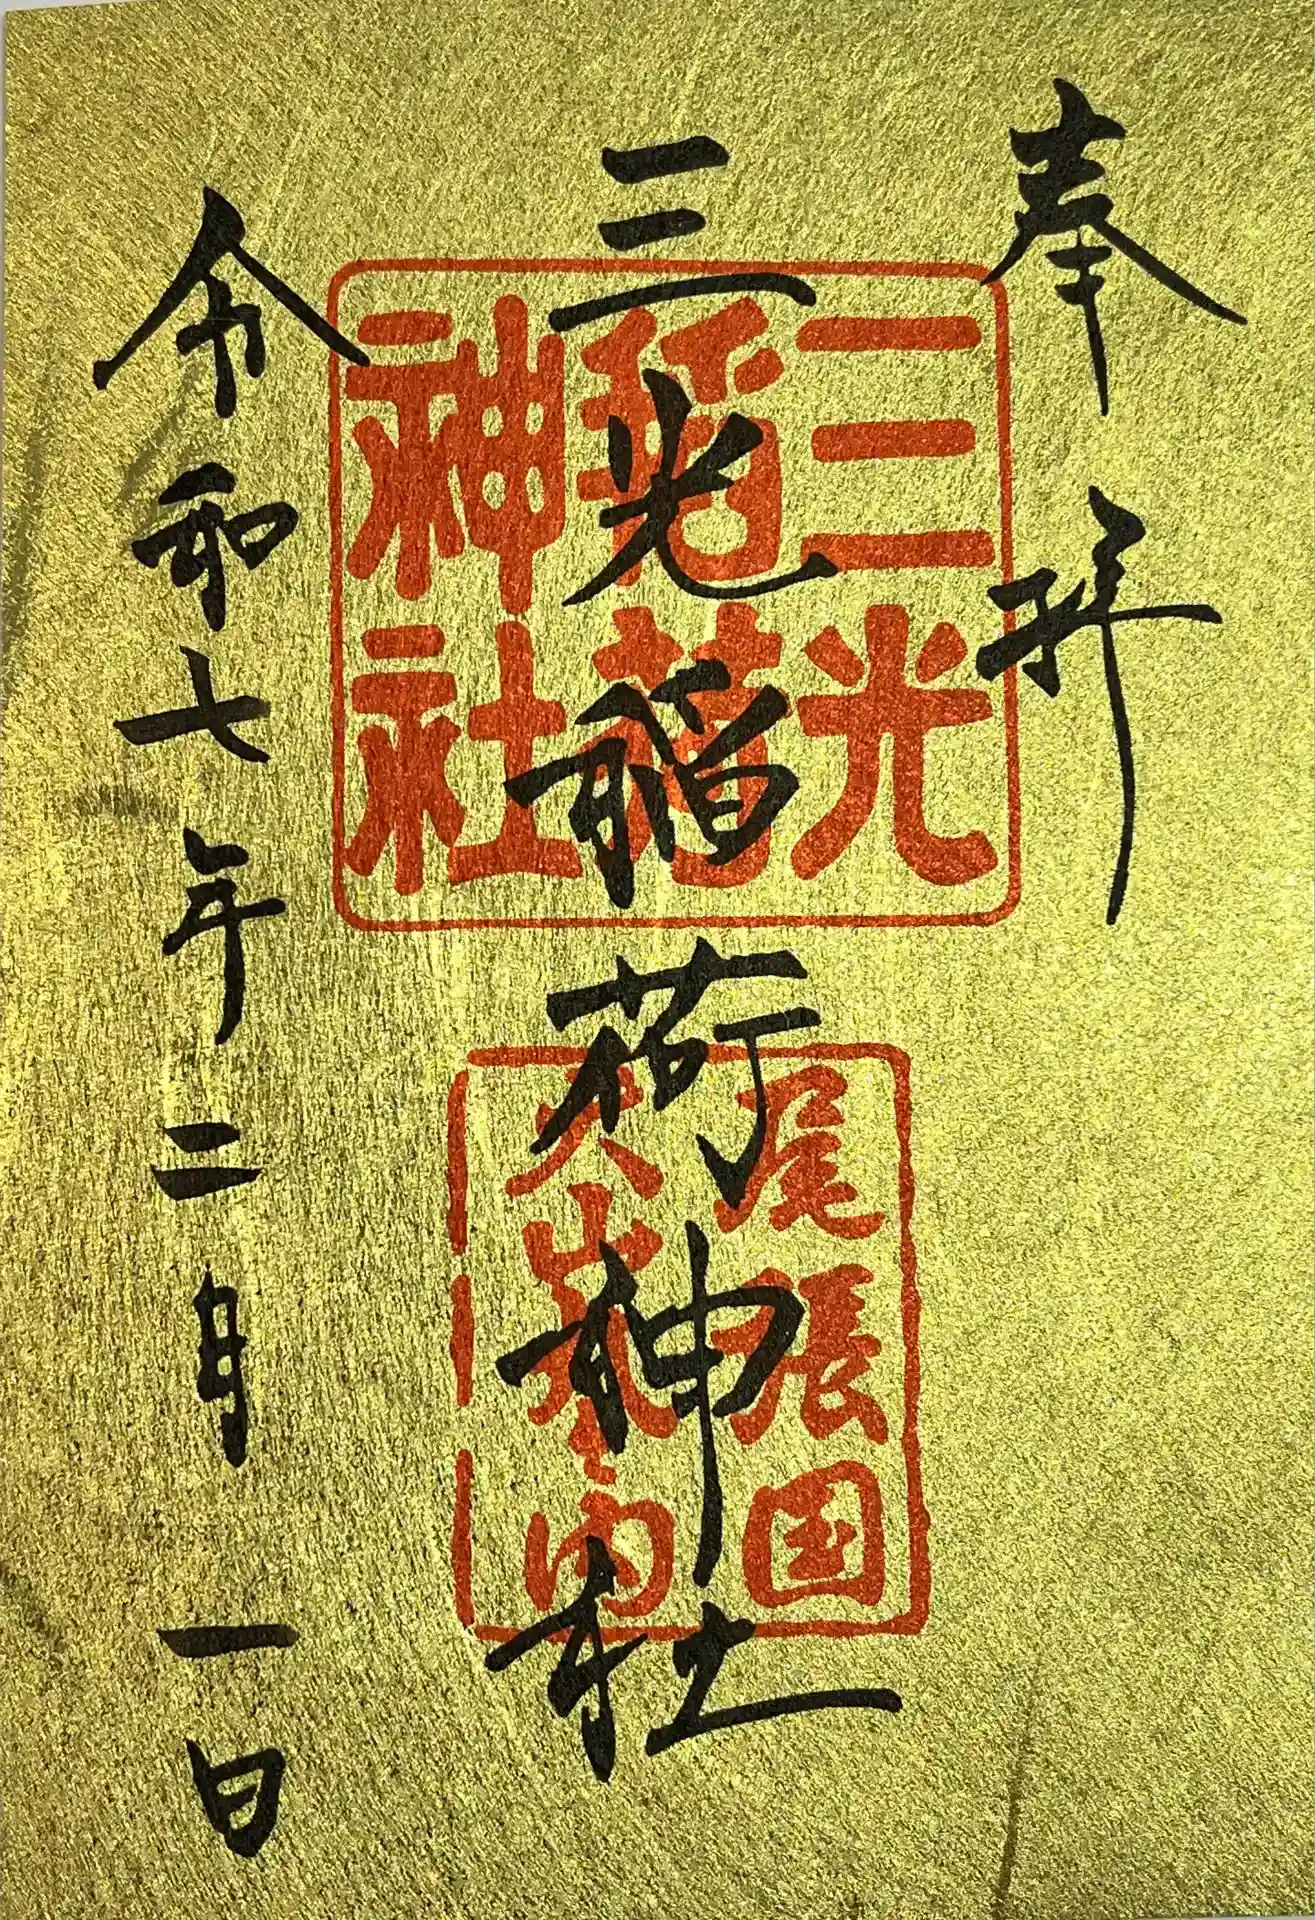 奉拝
三光稲荷神社
三光
稲荷
神社
尾張国
犬山城内
令和七年二月一日